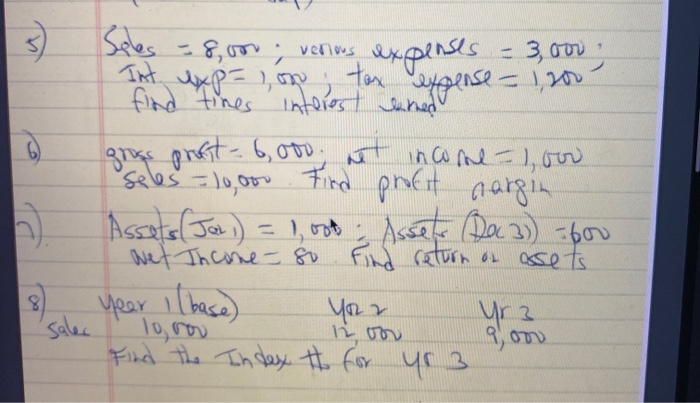 5) Sales = 8,000; various expenses = 3,000;
Int exp = 1,000; tax expense = 1,200
find times interest earned
6) gross profit = 6,000; net income = 1,000
Sales = 10,000 Find profit margin
7) Assets (Jan 1) = 1,000; Assets (Dec 31) = 600
Net Income = 80 Find return on assets
8) Year 1 (base) Yr 2 Yr 3
Sales 10,000 12,000 9,000
Find the Index # for yr 3